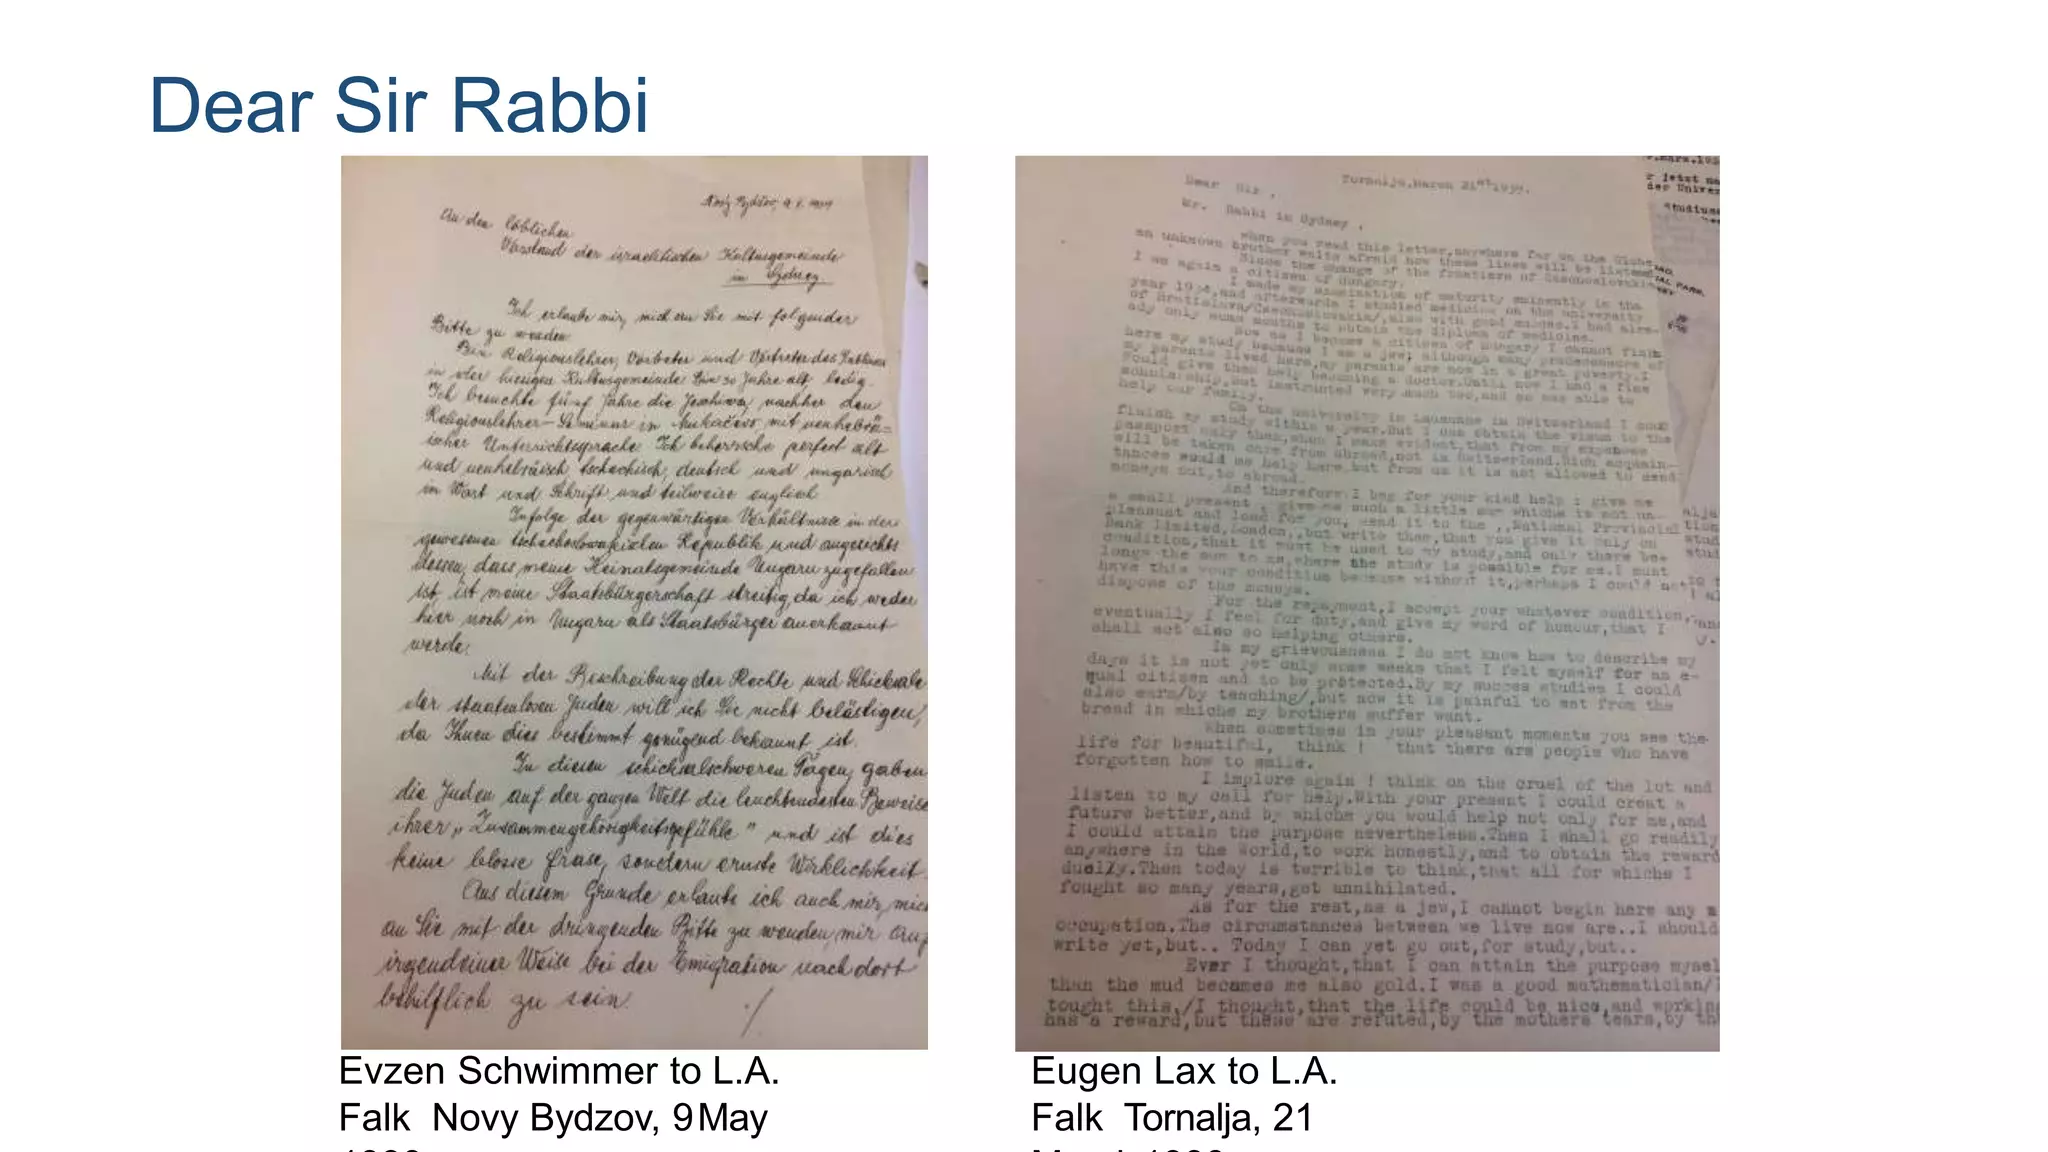 Dear Sir Rabbi
An den löblichen
Vorstand der israelitischen Kultusgemeinde
in Sydney.
Ich erlaube mir, mich an Sie mit folgender
Bitte zu wenden
Bin Religionslehrer, Vorbeter und Vertreter des
in der hiesigen Kultusgemeinde Bin 30 Jahre alt, ledig.
Ich besuchte fünf Jahre die Jeschiwa, nachher den
Religionslehrer-Seminar in Mukačevo mit neuhebrä=
ischer Unterrichtssprache. Ich beherrsche perfect alt
und neuhebräisch, tschechisch, deutsch und ungarisch
in Wort und Schrift und teilweise englisch
Infolge der gegenwärtigen Verhältnisse in der
gewesenen tschechoslowakischen Republik und angesichts
dessen, dass meine Heimatsgemeinde Ungarn zugefallen
ist, ist meine Staatsbürgerschaft streitig, da ich weder
hier noch in Ungarn als Staatsbürger anerkannt
werde.
Mit der Beschreibung der Rechte und Schicksale
der staatenlosen Juden will ich Sie nicht belästigen,
da Ihnen dies bestimmt genügend bekannt ist.
In diesen schicksalschweren Tagen, gaben
die Juden auf der ganzen Welt die leuchtendesten Beweise
ihrer „Zusammengehörigkeitsgefühle" und ist dies
keine blosse frase, sondern ernste Wirklichkeit.
Aus diesem Grunde erlaube ich auch mir, mich
an Sie mit der dringenden Bitte zu wenden, mir auf
irgendeiner Weise bei der Emigration nach dort
behilflich zu sein.
./
Evzen Schwimmer to L.A.
Falk Novy Bydzov, 9May
Dear Sir,
Tornalja, March 21st 1939.
Mr. Rabbi in Sydney,
When you read this letter, anywhere far on the Globe,
an unknown brother waits afraid how these lines will be listened
Since the change of the frontiers of Czechoslovakia
I am again a citizen of Hungary.
I made my examination of maturity eminently in the
year 1934, and afterwards I studied medicine on the university
of Bratislava/Czechoslovakia/, also with good
ady only some months to obtain the diploma of medicine.
Now as I become a citizen of Hungary I cannot finish
here my study because I am a jew, although many predecessors of
my parents lived here, my parents are now in a great poverty. I
could give them help becoming a doctor. Until now I had a free
scholarship, but instructed very much too, and so was able to
help our family.
On the university in Lausanne in Switzerland I could
finish my study within a year. But I can obtain the visum to the
passport only then, when I make evident, that from my expenses
will be taken care from abroad, not in Switzerland. Rich acquain-
tances would me help here, but from us it is not allowed to send
moneys out, to abroad.
And therefore I beg for your kind help ; give me
a small present ; give me such a little sum whiche is not un-
pleasant and load for you, send it to the ,,National Provincial
Bank Limited, London,, but write then, that you give it only on
condition, that it must be used to my study, and only there be-
longs the sum to me, where the study is possible for me. I must
have this your condition because without it, perhaps I could not
dispose of the moneys.
For the repayment, I accept your whatever condition,
eventually I feel for duty, and give my word of honour, that I
shall act also so helping others.
In my grievousness I do not know how to describe my
days it is not yet only some weeks that I felt myself for an e-
qual citizen and to be protected. By my succes studies I could
also earn/by teaching/, but now it is painful to eat from the
bread in whiche my brothers suffer want.
When sometimes in your pleasant moments you see the
life for beautiful, think ! that there are people who have
forgotten how to smile.
I implore again ! think on the cruel of the lot and
listen to my call for help. With your present I could creat a
future better, and by whiche you would help not only for me, and
I could attain the purpose nevertheless. Then I shall go readily
anywhere in the world, to work honestly, and to obtain the reward
dually. Then today is terrible to think, that all for whiche I
fought so many years, get annihilated.
As for the rest, as a jew, I cannot begin here any
occupation. The circumstances between we live now are.. I should
write yet, but.. Today I can yet go out, for study, but..
Ever I thought, that I can attain the purpose
than the mud becomes me also gold. I was a good mathematician/I
tought this,/I thought, that the life could be nice, and working
has a reward, but these are refuted, by the mothers tears, by
Eugen Lax to L.A.
Falk Tornalja, 21